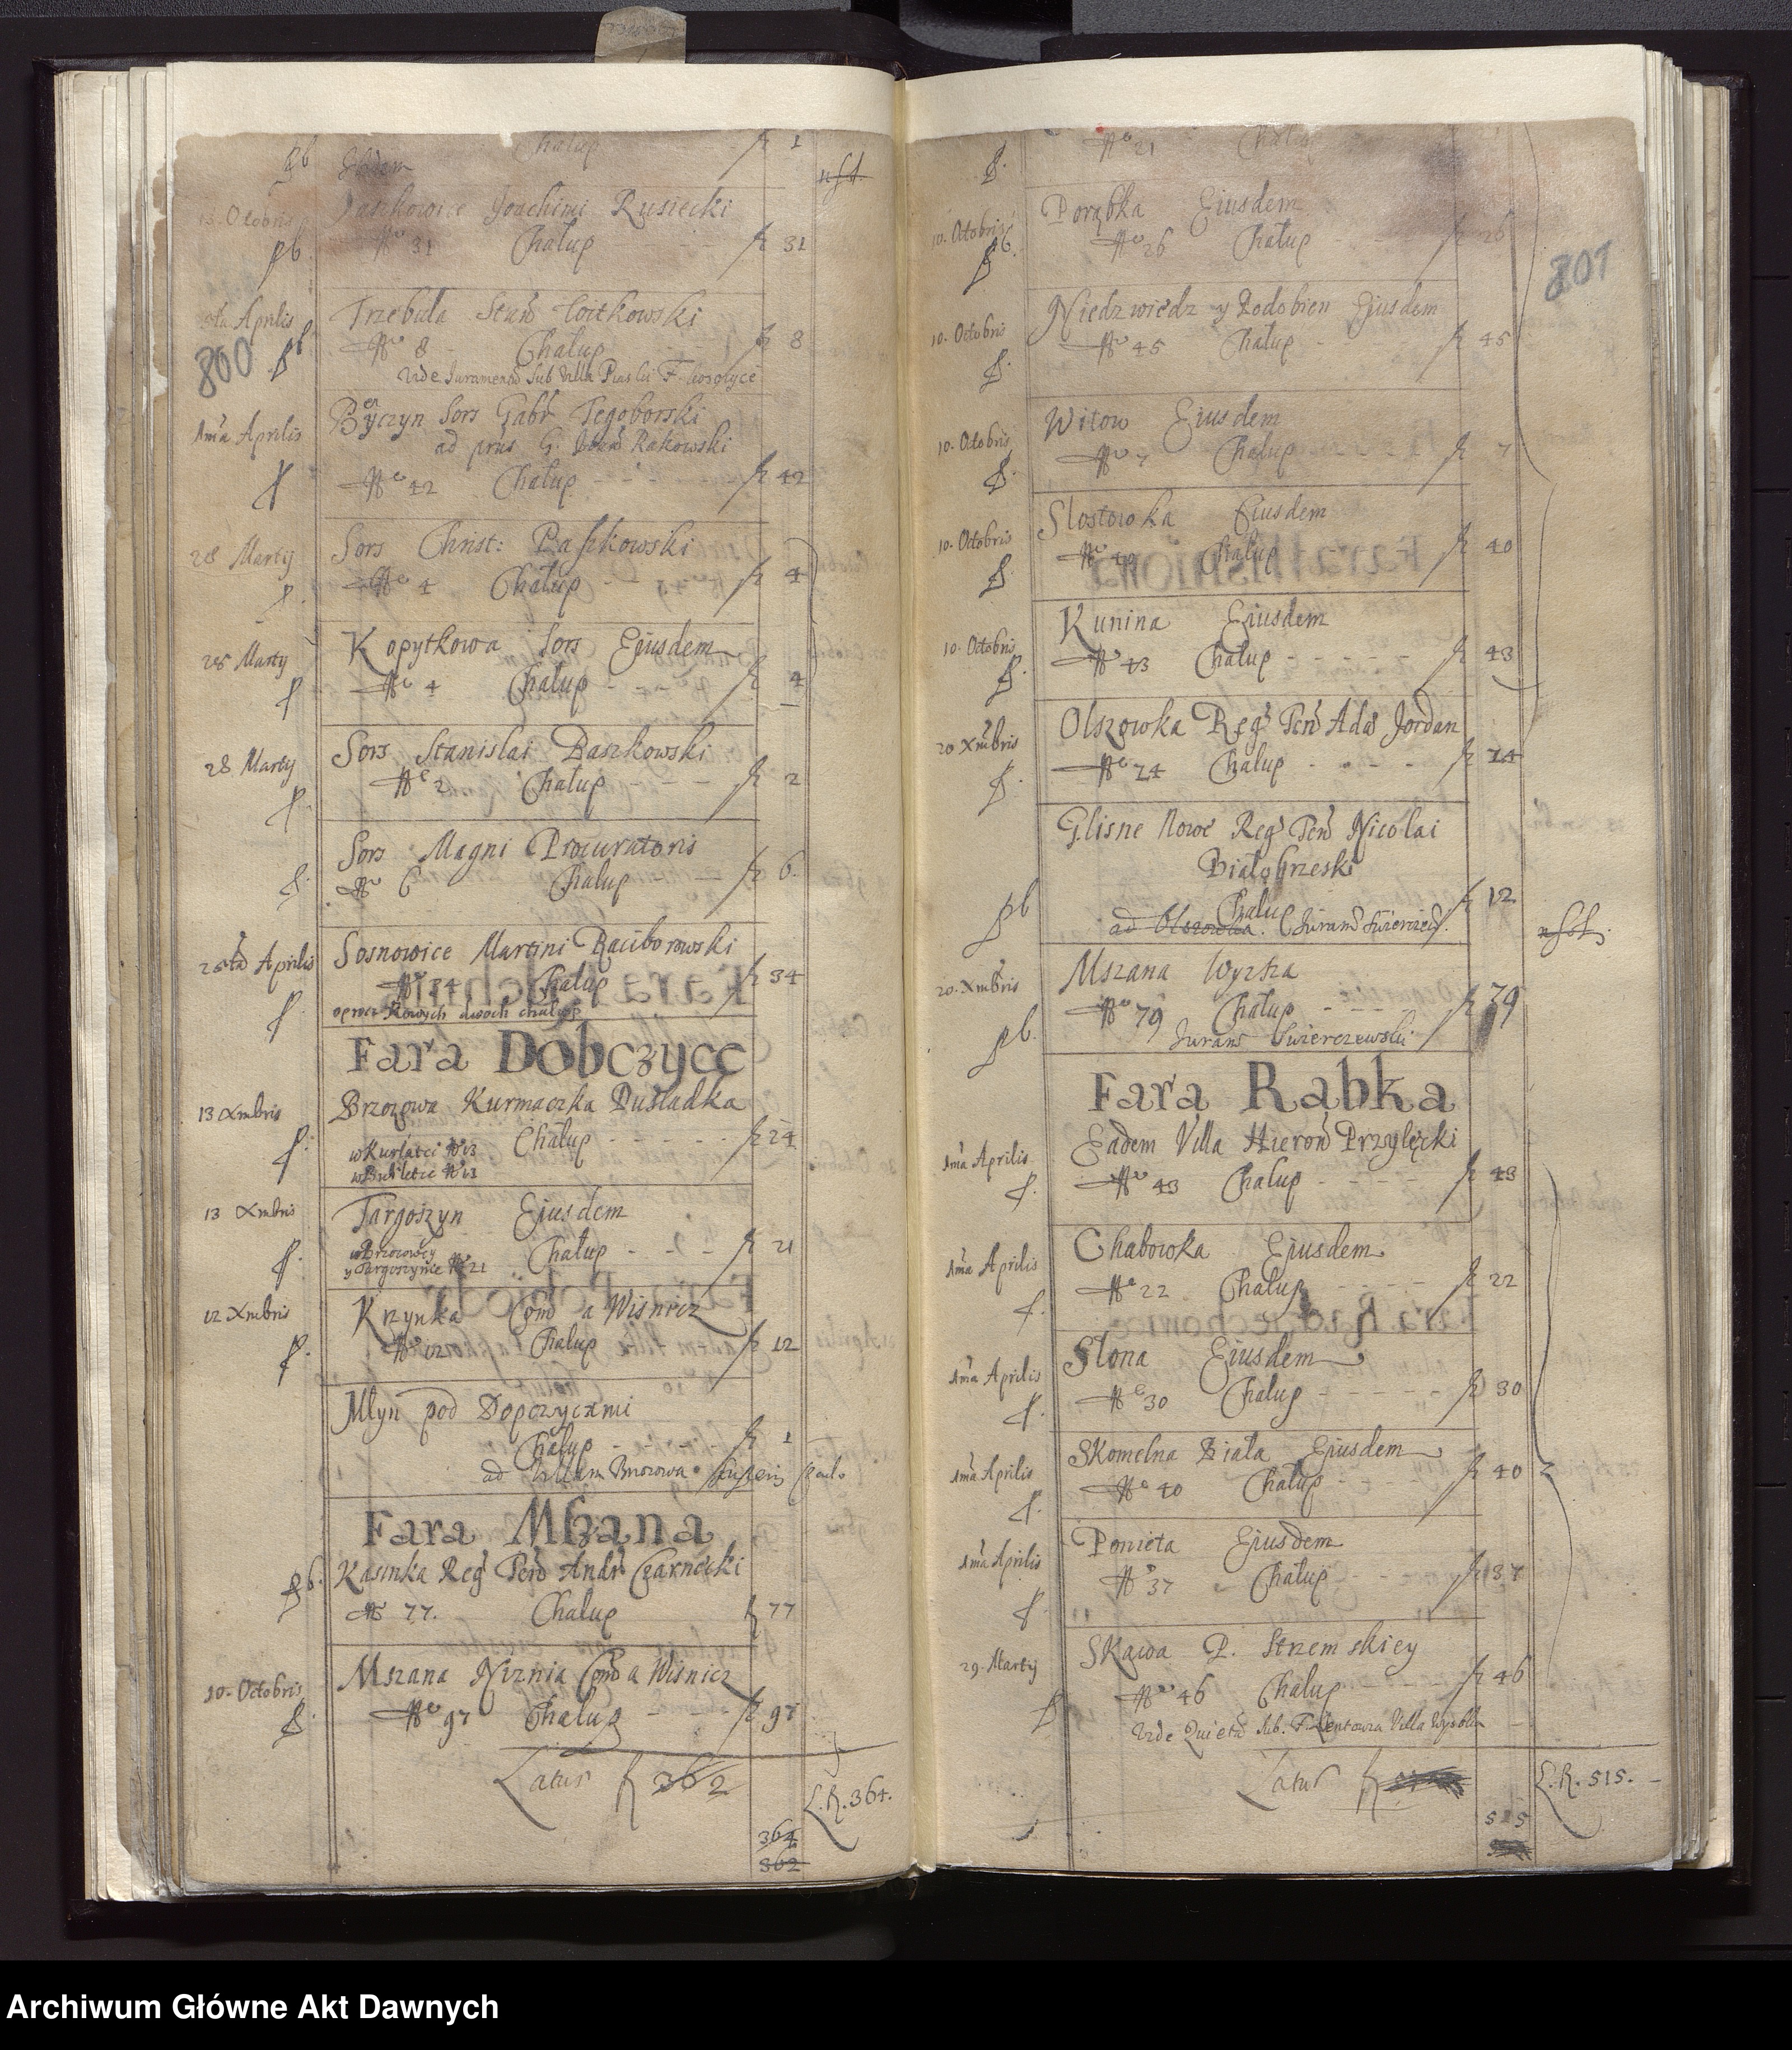 Chałup 1
Ibidem
13. Octobris Paszkowice Joachimi Rusiecki
No 31 Chałup 31
Aprilis Trzebula Stan Witkowski
800
No 8 Chałup 8
Vide Jurament Sub Villa
1ma Aprilis Byczyn Sors Gabr Tęgoborski
ad prns G. Rakowski
No 42 Chałup 42
28 Martij Sors Christ: Paszkowski
No 4 Chałup 4
28 Martij Kopytkowa Sors Ejusdem
No 4 Chałup 4
28 Martij Sors Stanislai Paszkowski
No 2 Chałup 2
Sors Magni Procuratoris
No 6 Chałup 6.
Aprilis Sosnowice Martini Raciborowski
No 34 Chałup 34
oprocz Nowych dwoch chałup
Fara Dobczyce
13 Xmbris Brzozowa Kurmaczka Dusladka
Chałup 24
No 13
No 13
13 Xmbris Targoszyn Ejusdem
w Brzozowey Chałup 21
y Targoszynie No 21
12 Xmbris Krzynka Comd a Wisnicz
No 12 Chałup 12
Młyn pod Dopczycami
Chałup 1
ad Villam Brzozowa
Fara Mszana
Kasinka Reg Ten Andr Czarnecki
No 77. Chałup 77
10. Octobris Mszana Niznia Comd a Wisnicz
No 97 Chałup 97
Latus 362
L.R. 364.
364
362
No 21 Chałup
10. Octobris Porąbka Ejusdem
No 26 Chałup 26
801
10. Octobris Niedzwiedz y Podobien Ejusdem
No 45 Chałup 45
10. Octobris Witow Ejusdem
No 7 Chałup 7
10. Octobris Slostowka Ejusdem
No 40 Chałup 40
10. Octobris Kunina Ejusdem
No 43 Chałup 43
20 Xmbris Olszowka Reg Ten Ada Jordan
No 74 Chałup 74
Glisne Nowe Reg Ten Nicolai
Białobrzeski
Chałup 12
ad Olszowka.
20. Xmbris Mszana Wyzsza
No 79 Chałup 79
Juram Swierczewski
Fara Rabka
1ma Aprilis Eadem Villa Hieron Przyłęcki
No 43 Chałup 43
1ma Aprilis Chabowka Ejusdem
No 22 Chałup 22
1ma Aprilis Słona Ejusdem
No 30 Chałup 30
1ma Aprilis Skomelna Biała Ejusdem
No 40 Chałup 40
1ma Aprilis Ponieta Ejusdem
No 37 Chałup 37
29. Martij Skawa P. Strzemskiey
No 46 Chałup 46
Vide Quietã Sub. F. Villa Wysoka
Latus
L.R. 515.
515
Archiwum Główne Akt Dawnych